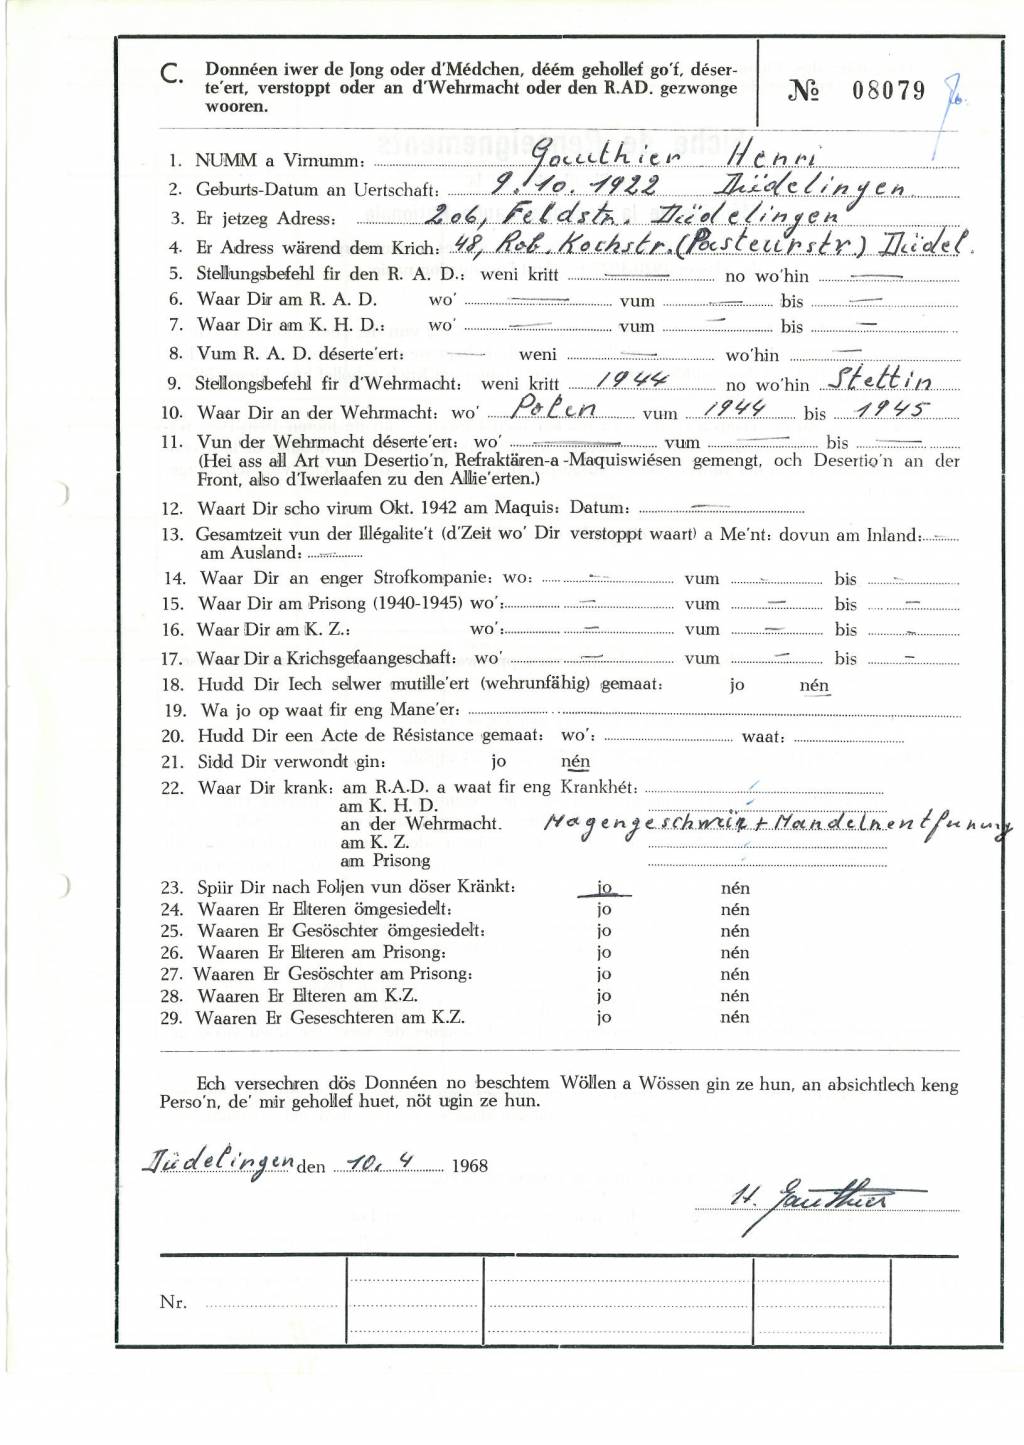 C. Donnéen iwer de Jong oder d'Médchen, déém gehollef go'f, déser-
te'ert, verstoppt oder an d'Wehrmacht oder den R.AD. gezwonge
wooren.
№ 08079
1. NUMM a Virnumm: Gauthier Henri
2. Geburts-Datum an Uertschaft: 9.10.1922 Düdelingen
3. Er jetzeg Adress: 206, Feldstr. Düdelingen
4. Er Adress wärend dem Krich: 48, Rob. Kochstr. (Pasteurstr.) Düdel.
5. Stellungsbefehl fir den R. A. D.: weni kritt — no wo'hin —
6. Waar Dir am R. A. D. wo' — vum — bis —
7. Waar Dir am K. H. D.: wo' — vum — bis —
8. Vum R. A. D. déserte'ert: — weni — wo'hin —
9. Stellongsbefehl fir d'Wehrmacht: weni kritt 1944 no wo'hin Stettin
10. Waar Dir an der Wehrmacht: wo' Polen vum 1944 bis 1945
11. Vun der Wehrmacht déserte'ert: wo' — vum — bis —
(Hei ass all Art vun Desertio'n, Refraktären-a -Maquiswiésen gemengt, och Desertio'n an der
Front, also d'Iwerlaafen zu den Allie'erten.)
12. Waart Dir scho virum Okt. 1942 am Maquis: Datum: —
13. Gesamtzeit vun der Illégalite't (d'Zeit wo' Dir verstoppt waart) a Me'nt: dovun am Inland: —
am Ausland: —
14. Waar Dir an enger Strofkompanie: wo: — vum — bis —
15. Waar Dir am Prisong (1940-1945) wo': — vum — bis —
16. Waar Dir am K. Z.: wo': — vum — bis —
17. Waar Dir a Krichsgefaangeschaft: wo' — vum — bis —
18. Hudd Dir Iech selwer mutille'ert (wehrunfähig) gemaat: jo nén
19. Wa jo op waat fir eng Mane'er:
20. Hudd Dir een Acte de Résistance gemaat: wo': waat:
21. Sidd Dir verwondt gin: jo nén
22. Waar Dir krank: am R.A.D. a waat fir eng Krankhét:
am K. H. D.
an der Wehrmacht. Magengeschwür + Mandelnentfunung
am K. Z.
am Prisong
23. Spiir Dir nach Foljen vun döser Kränkt: jo nén
24. Waaren Er Elteren ömgesiedelt: jo nén
25. Waaren Er Gesöschter ömgesiedelt: jo nén
26. Waaren Er Elteren am Prisong: jo nén
27. Waaren Er Gesöschter am Prisong: jo nén
28. Waaren Er Elteren am K.Z. jo nén
29. Waaren Er Geseschteren am K.Z. jo nén
Ech versechren dös Donnéen no beschtem Wöllen a Wössen gin ze hun, an absichtlech keng
Perso'n, de' mir gehollef huet, nöt ugin ze hun.
Düdelingen den 10. 4 1968
H. Gauthier
Nr.